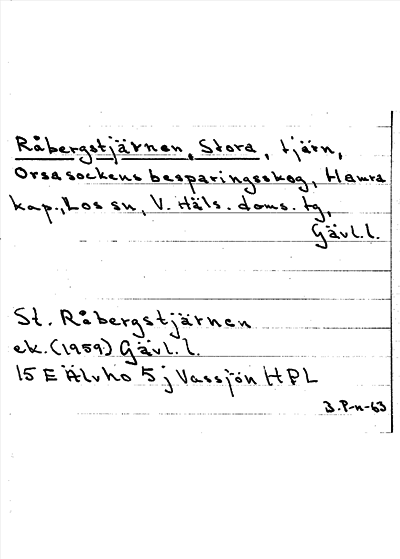 Råbergstjärnen, Stora, tjärn,
Orsasockens besparingsskog, Hamra
kap., Los sn, V. Häls. doms. tg,
Gävl.l.
St. Råbergstjärnen
ek. (1959) Gävl.l.
15 E Älvho 5 j Vassjön HPL
B.P-n-63